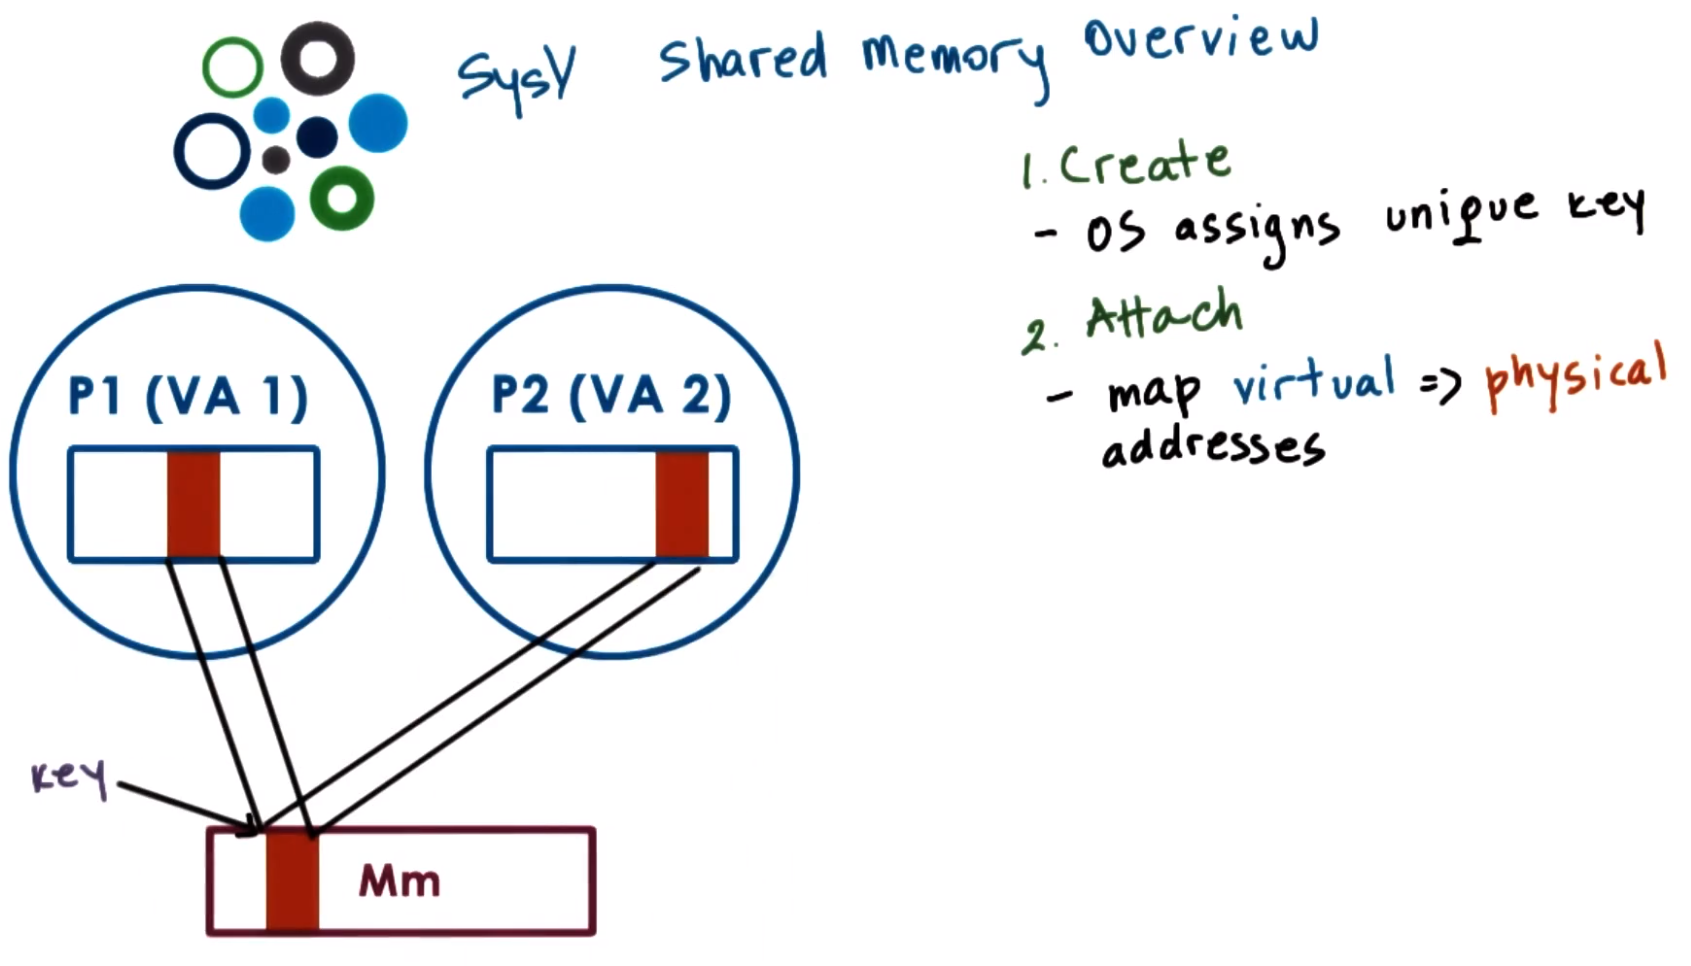 SysV Shared Memory Overview
1. Create
- OS assigns unique key
2. Attach
- map virtual => physical
addresses
P1 (VA 1)
P2 (VA 2)
key
Mm